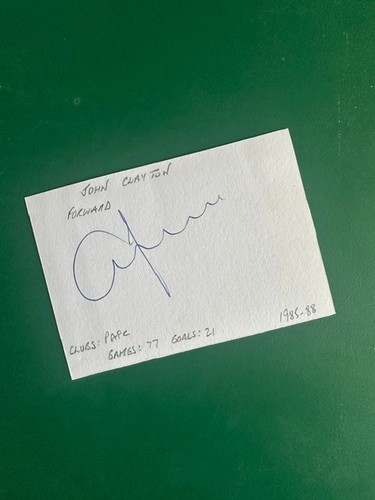 JOHN CLAYTON
FORWARD
CLUBS: PAFC
GAMES: 77 GOALS: 21
1985-88